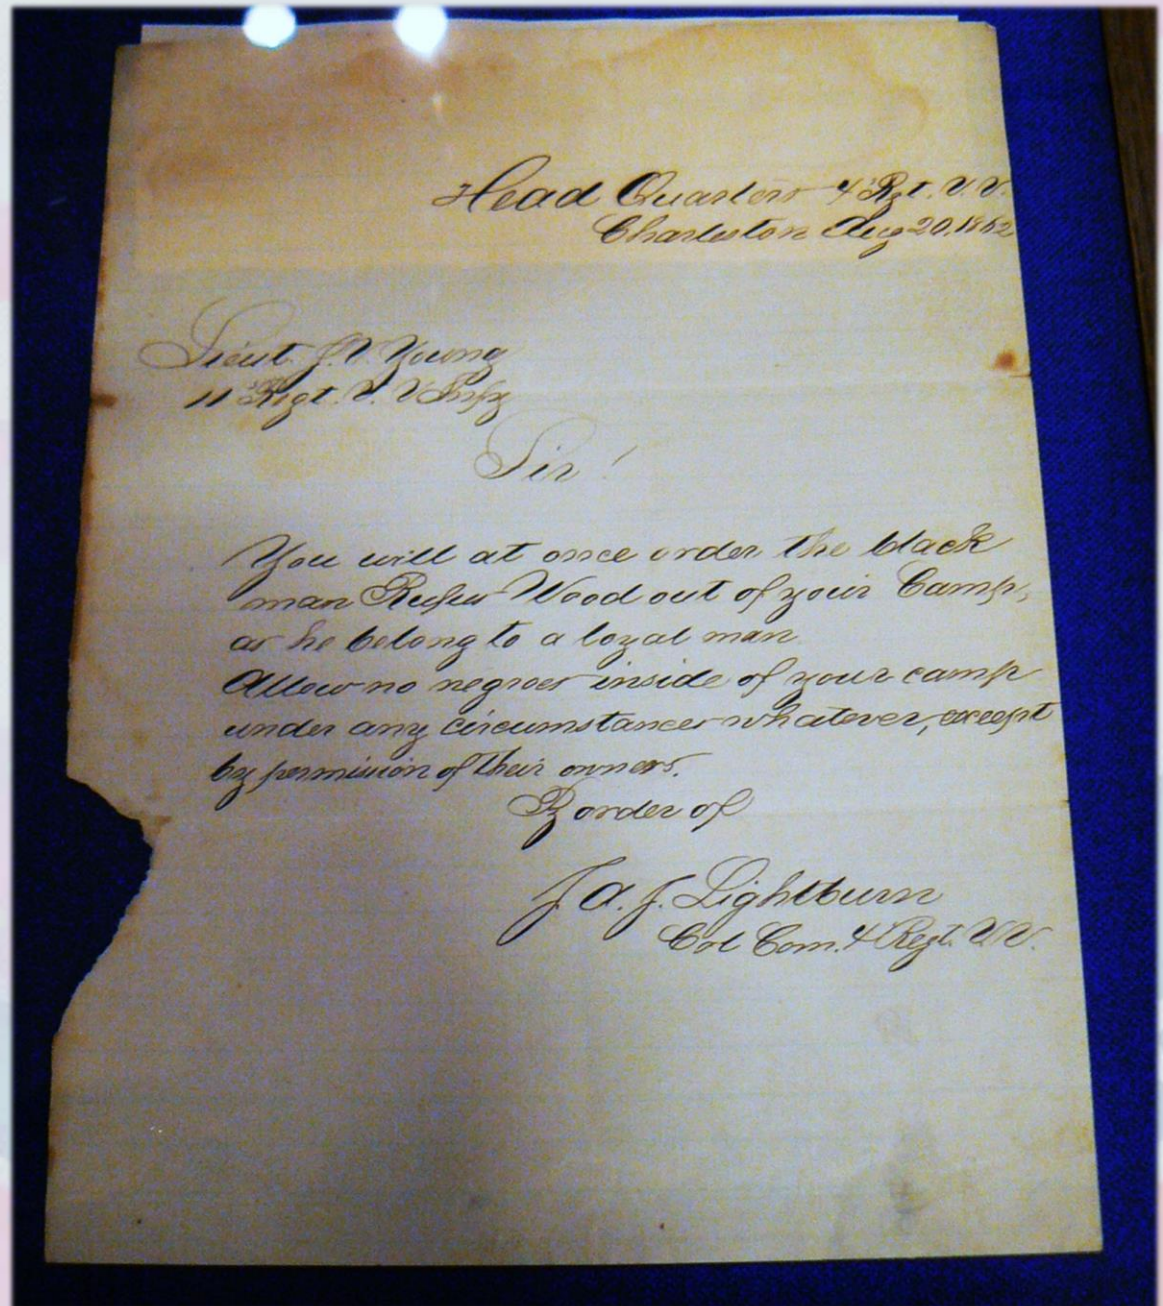 Head Quarters 4 Rgt. V. V.
Charleston Aug 20, 1862
Lieut J. V. Young
11 Rigt. V. V Infy
Sir!
You will at once order the black
man Rufus Wood out of your Camp,
as he belong to a loyal man
Allow no negroes inside of your camp
under any circumstances whatever, except
by permision of their owners.
By order of
J. A. J. Lightburn
Col Com. 4 Regt. V. V.